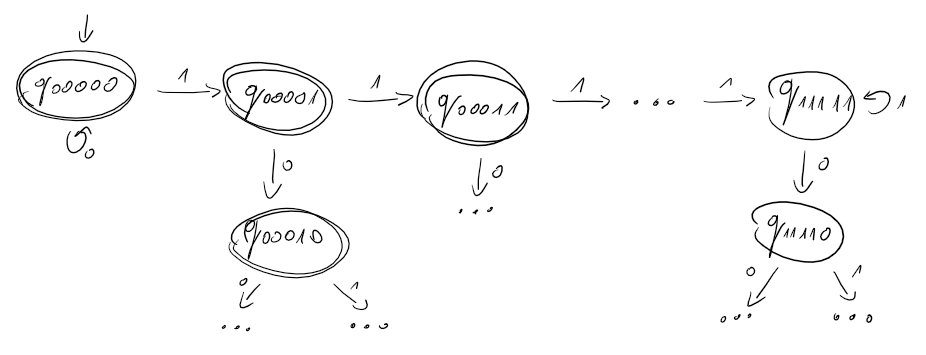 q00000 1 q00001 1 q00011 1 ... 1 q11111 1
0 0 0 0
q00010 ... q11110
0 1 0 1
... ... ... ...